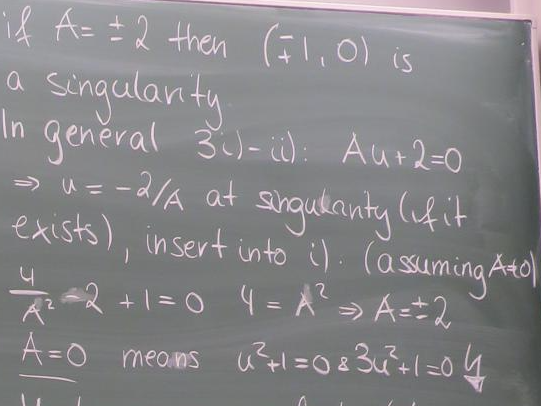 if A = ± 2 then (∓1, 0) is
a singularity.
In general 3i)-ii): Au+2=0
⇒ u = -2/A at singularity (if it
exists), insert into i). (assuming A≠0)
4/A² - 2 + 1 = 0 4 = A² ⇒ A = ± 2
A=0 means u²+1=0 & 3u²+1=0 ↯